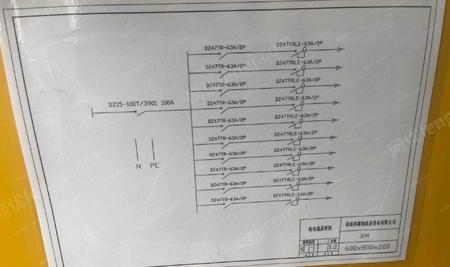 DZ47TR-63A/2P DZ47TRLE-63A/2P
DZ47TR-63A/2P DZ47TRLE-63A/2P
DZ47TR-63A/2P DZ47TRLE-63A/2P
DZ15-100T/3901 100A
DZ47TR-63A/2P DZ47TRLE-63A/2P
DZ47TR-63A/2P DZ47TRLE-63A/2P
DZ47TR-63A/2P DZ47TRLE-63A/2P
DZ47TR-63A/2P DZ47TRLE-63A/2P
DZ47TR-63A/2P DZ47TRLE-63A/2P
DZ47TR-63A/2P DZ47TRLE-63A/2P
N PE
XM
600x800x200